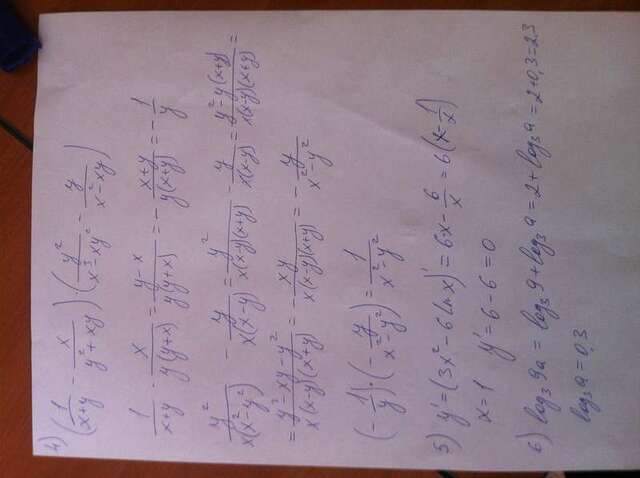 4) (1/(x+y) - x/(y²+xy)) · (y²/(x³-xy²) - y/(x²-xy))
1/(x+y) - x/(y(y+x)) = (y-x)/(y(y+x)) = -(x+y)/(y(x+y)) = -1/y
y²/(x(x²-y²)) - y/(x(x-y)) = y²/(x(x-y)(x+y)) - y/(x(x-y)) = (y²-y(x+y))/(x(x-y)(x+y)) =
= (y²-xy-y²)/(x(x-y)(x+y)) = -xy/(x(x-y)(x+y)) = -y/(x²-y²)
(-1/y) · (-y/(x²-y²)) = 1/(x²-y²)
5) y' = (3x²-6ln x)' = 6x - 6/x = 6(x - 1/x)
x=1 y'=6-6=0
6) log₃ 9a = log₃ 9 + log₃ a = 2 + log₃ a = 2+0,3=2,3
log₃ a = 0,3